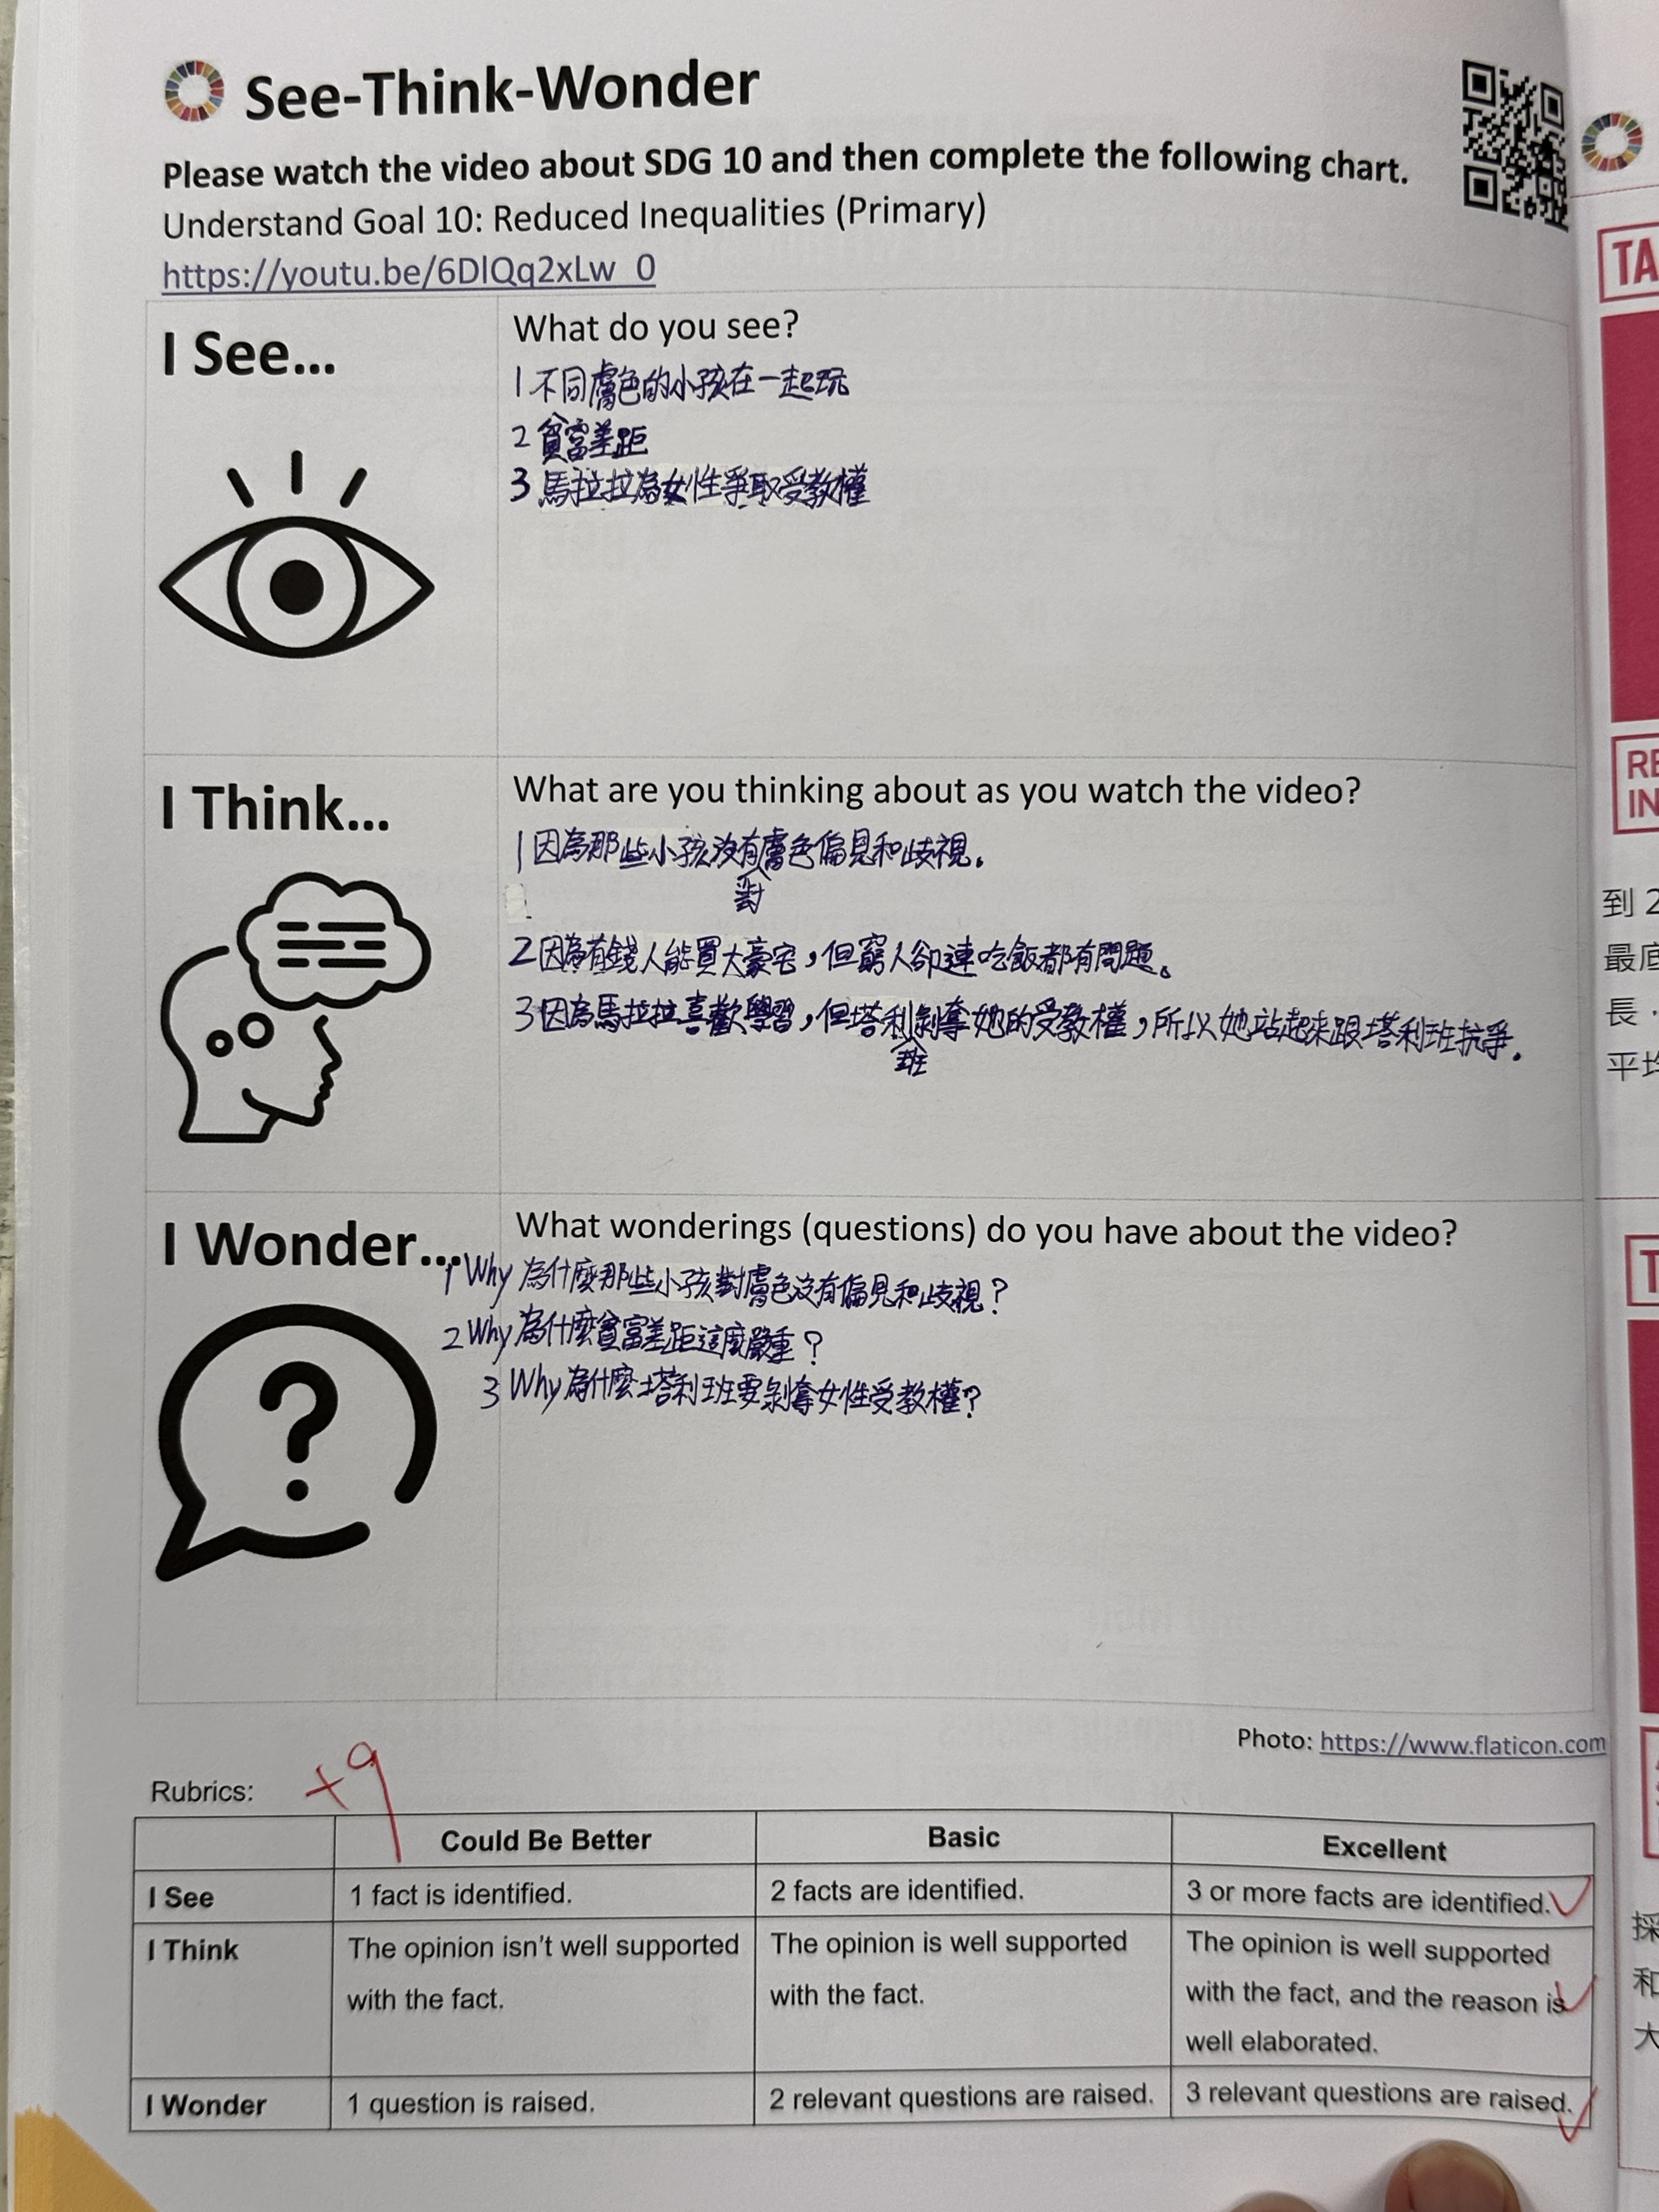 See-Think-Wonder
Please watch the video about SDG 10 and then complete the following chart.
Understand Goal 10: Reduced Inequalities (Primary)
https://youtu.be/6DlQq2xLw_0
I See...
What do you see?
1 不同膚色的小孩在一起玩
2 貧富差距
3 馬拉拉為女性爭取受教權
I Think...
What are you thinking about as you watch the video?
1 因為那些小孩沒有對膚色偏見和歧視.
2 因為有錢人能買大豪宅,但窮人卻連吃飯都有問題。
3 因為馬拉拉喜歡學習,但塔利班剝奪她的受教權,所以她站起來跟塔利班抗爭.
I Wonder...
What wonderings (questions) do you have about the video?
1 Why 為什麼那些小孩對膚色沒有偏見和歧視?
2 Why 為什麼貧富差距這麼嚴重?
3 Why 為什麼塔利班要剝奪女性受教權?
Photo: https://www.flaticon.com
Rubrics:
+9
Could Be Better Basic Excellent
I See 1 fact is identified. 2 facts are identified. 3 or more facts are identified.
I Think The opinion isn't well supported with the fact. The opinion is well supported with the fact. The opinion is well supported with the fact, and the reason is well elaborated.
I Wonder 1 question is raised. 2 relevant questions are raised. 3 relevant questions are raised.
TA
RE
IN
到 2
最底
長
平均
T
採
和
大